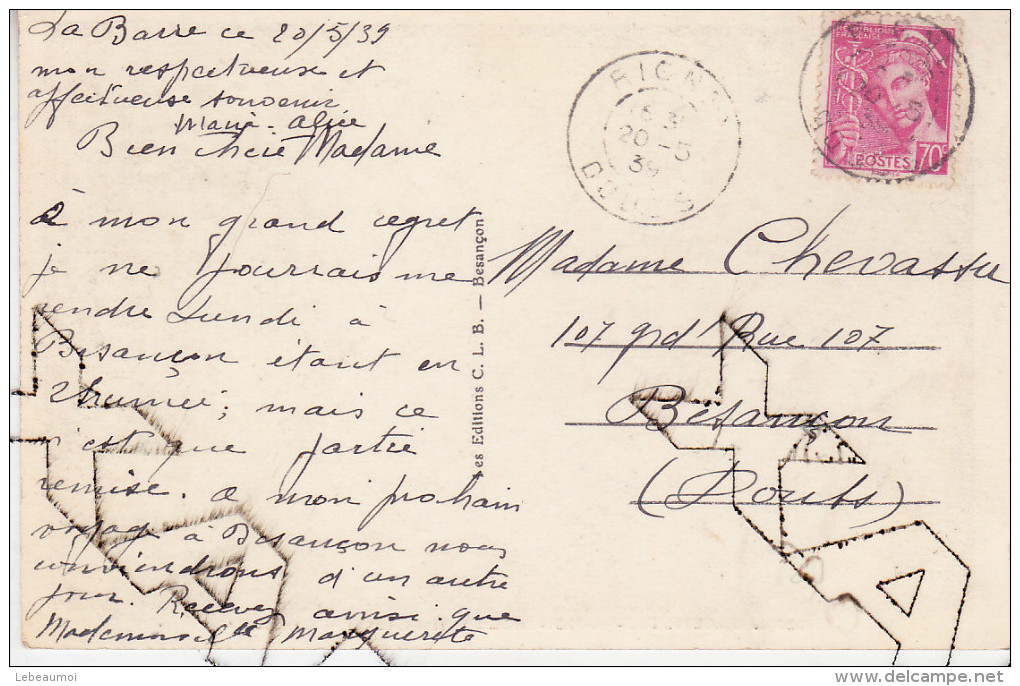 La Barre ce 20/5/39
mon respectueuse et
affectueuse souvenir
Marie-Alice
Bien chère Madame
à mon grand regret
je ne pourrais me
rendre Lundi à
Besançon étant en
; mais ce
n'est que partie
remise. a mon prochain
voyage à Besançon nous
conviendrons d'un autre
jour. Recevez ainsi que
Mademoiselle Marguerite
Les Editions C. L. B. — Besançon
20 -5
39
DOUBS
REPUBLIQUE
FRANÇAISE
POSTES 70c
Madame Chevassu
107 grd' Rue 107
Besançon
(Doubs)
Lebeaumoi
delcampe.net